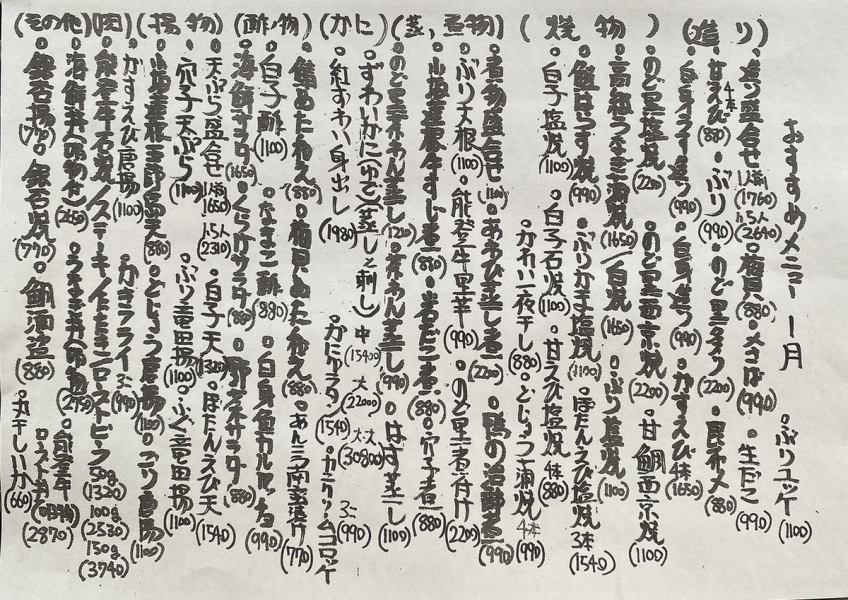 おすすめメニュー 一月
(造り)
。造り盛合せ 1人前(1760) 1.5人(2640) 。梅貝(880) 。メさば(990) 。ぶりユッケ(1100)
。甘えび4本(880) 。ぶり(990) 。のど黒造り(2200) 。昆布〆(880) 。生だこ(990)
。白身うす造り(990) 。白身造り(990) 。がすえび4本(1650)
(焼物)
。のど黒塩焼(2200) 。のど黒西京焼(2200) 。甘鯛西京焼(1100)
。高級うなぎ蒲焼(1650)/白焼(1650) 。ぶり塩焼(1100)
。鮭はらす焼(990) 。ぶりかま塩焼(1100) 。ぼたんえび塩焼3本(1540)
。白子塩焼(1100) 。白子石焼(1100) 。甘えび塩焼4本(880)
。かれい一夜干し(880) 。どじょう蒲焼4本(990)
(蒸,煮物)
。煮物盛合せ(1100) 。あわび蒸し煮(2200) 。鴨の治部煮(990)
。ぶり大根(1100) 。能登牛里芋(990) 。のど黒煮付け(2200)
。小坂蓮根牛すじ煮(880) 。岩だこ煮(880) 。穴子煮(880)
。のど黒茶わん蒸し(1210) 。茶わん蒸し(990) 。はす蒸し(1100)
(かに)
。ずわいかに(ゆで)(蒸しと刺し) 中(15400) 大(22000) 大大(30800)
。紅ずわい身出し(1980) 。かにグラタン(1540) 。カニクリームコロッケ2コ(990)
(酢物)
。鯖ぬた和え(880) 。梅貝ぬた和え(880) 。あん肝南蛮漬け(770)
。白子酢(1100) 。なまこ酢(880) 。白身魚カルパッチョ(990)
。海鮮サラダ(1650) 。くらげサラダ(880) 。野菜サラダ(880)
(揚物)
。天ぷら盛合せ 1人前1650 1.5人(2310) 。白子天(1320) 。ぼたんえび天(1540)
。穴子天ぷら(1100) 。ぶり竜田揚(1100) 。ふぐ竜田揚(1100)
。小坂蓮根 五郎島天(880) 。どじょう唐揚(1100) 。ごり唐揚(1100)
。がすえび唐揚(1100) 。かきフライ2コ(990)
(肉)
。能登牛石焼/ステーキ/たたき/ローストビーフ 50g(1320) 100g(2530) 150g(3740)
(その他)
。海鮮丼(吸物付)(2650) 。うなぎ丼(吸物)(2750) 。能登牛ロースト丼(吸物)(2870)
。銀杏揚(770) 。銀杏焼(770) 。鯛酒盗(880) 。丸干しいか(660)